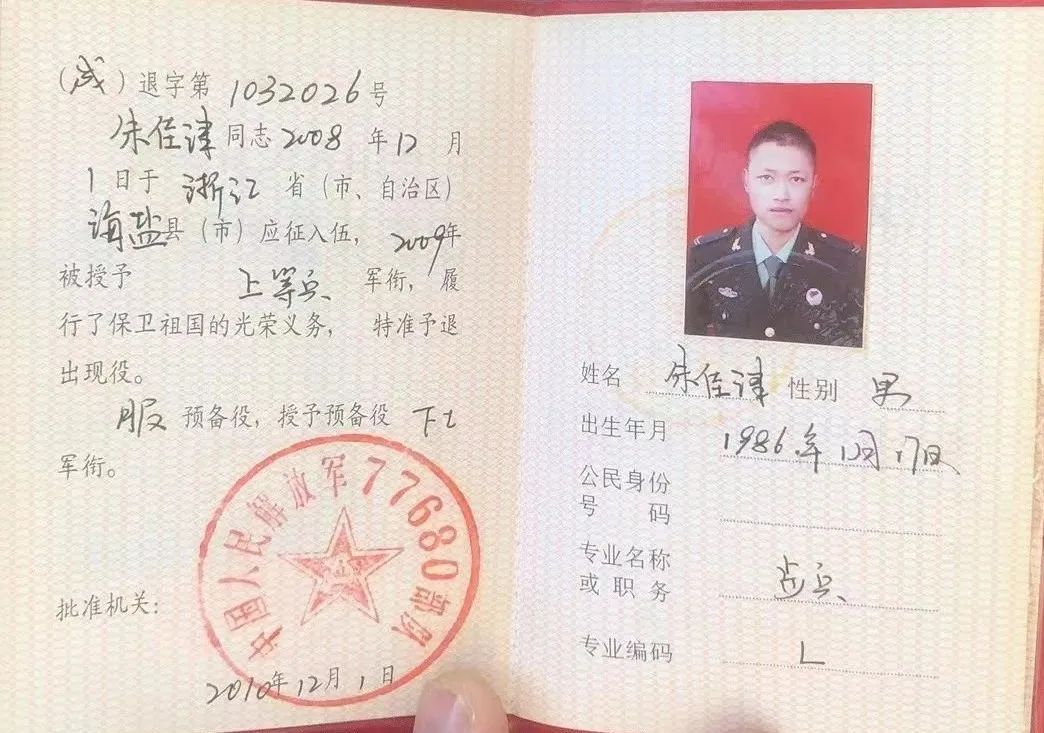 (成)退字第1032026号
朱佳津同志2008年12月
1日于浙江省(市、自治区)
海盐县(市)应征入伍,2009年
被授予 上等兵 军衔,履
行了保卫祖国的光荣义务, 特准予退
出现役。
服预备役,授予预备役下士
军衔。
中国人民解放军77680部队
批准机关:
2010年12月1日
姓名 朱佳津 性别 男
出生年月 1986年12月17日
公民身份
号码
专业名称
或职务
专业编码